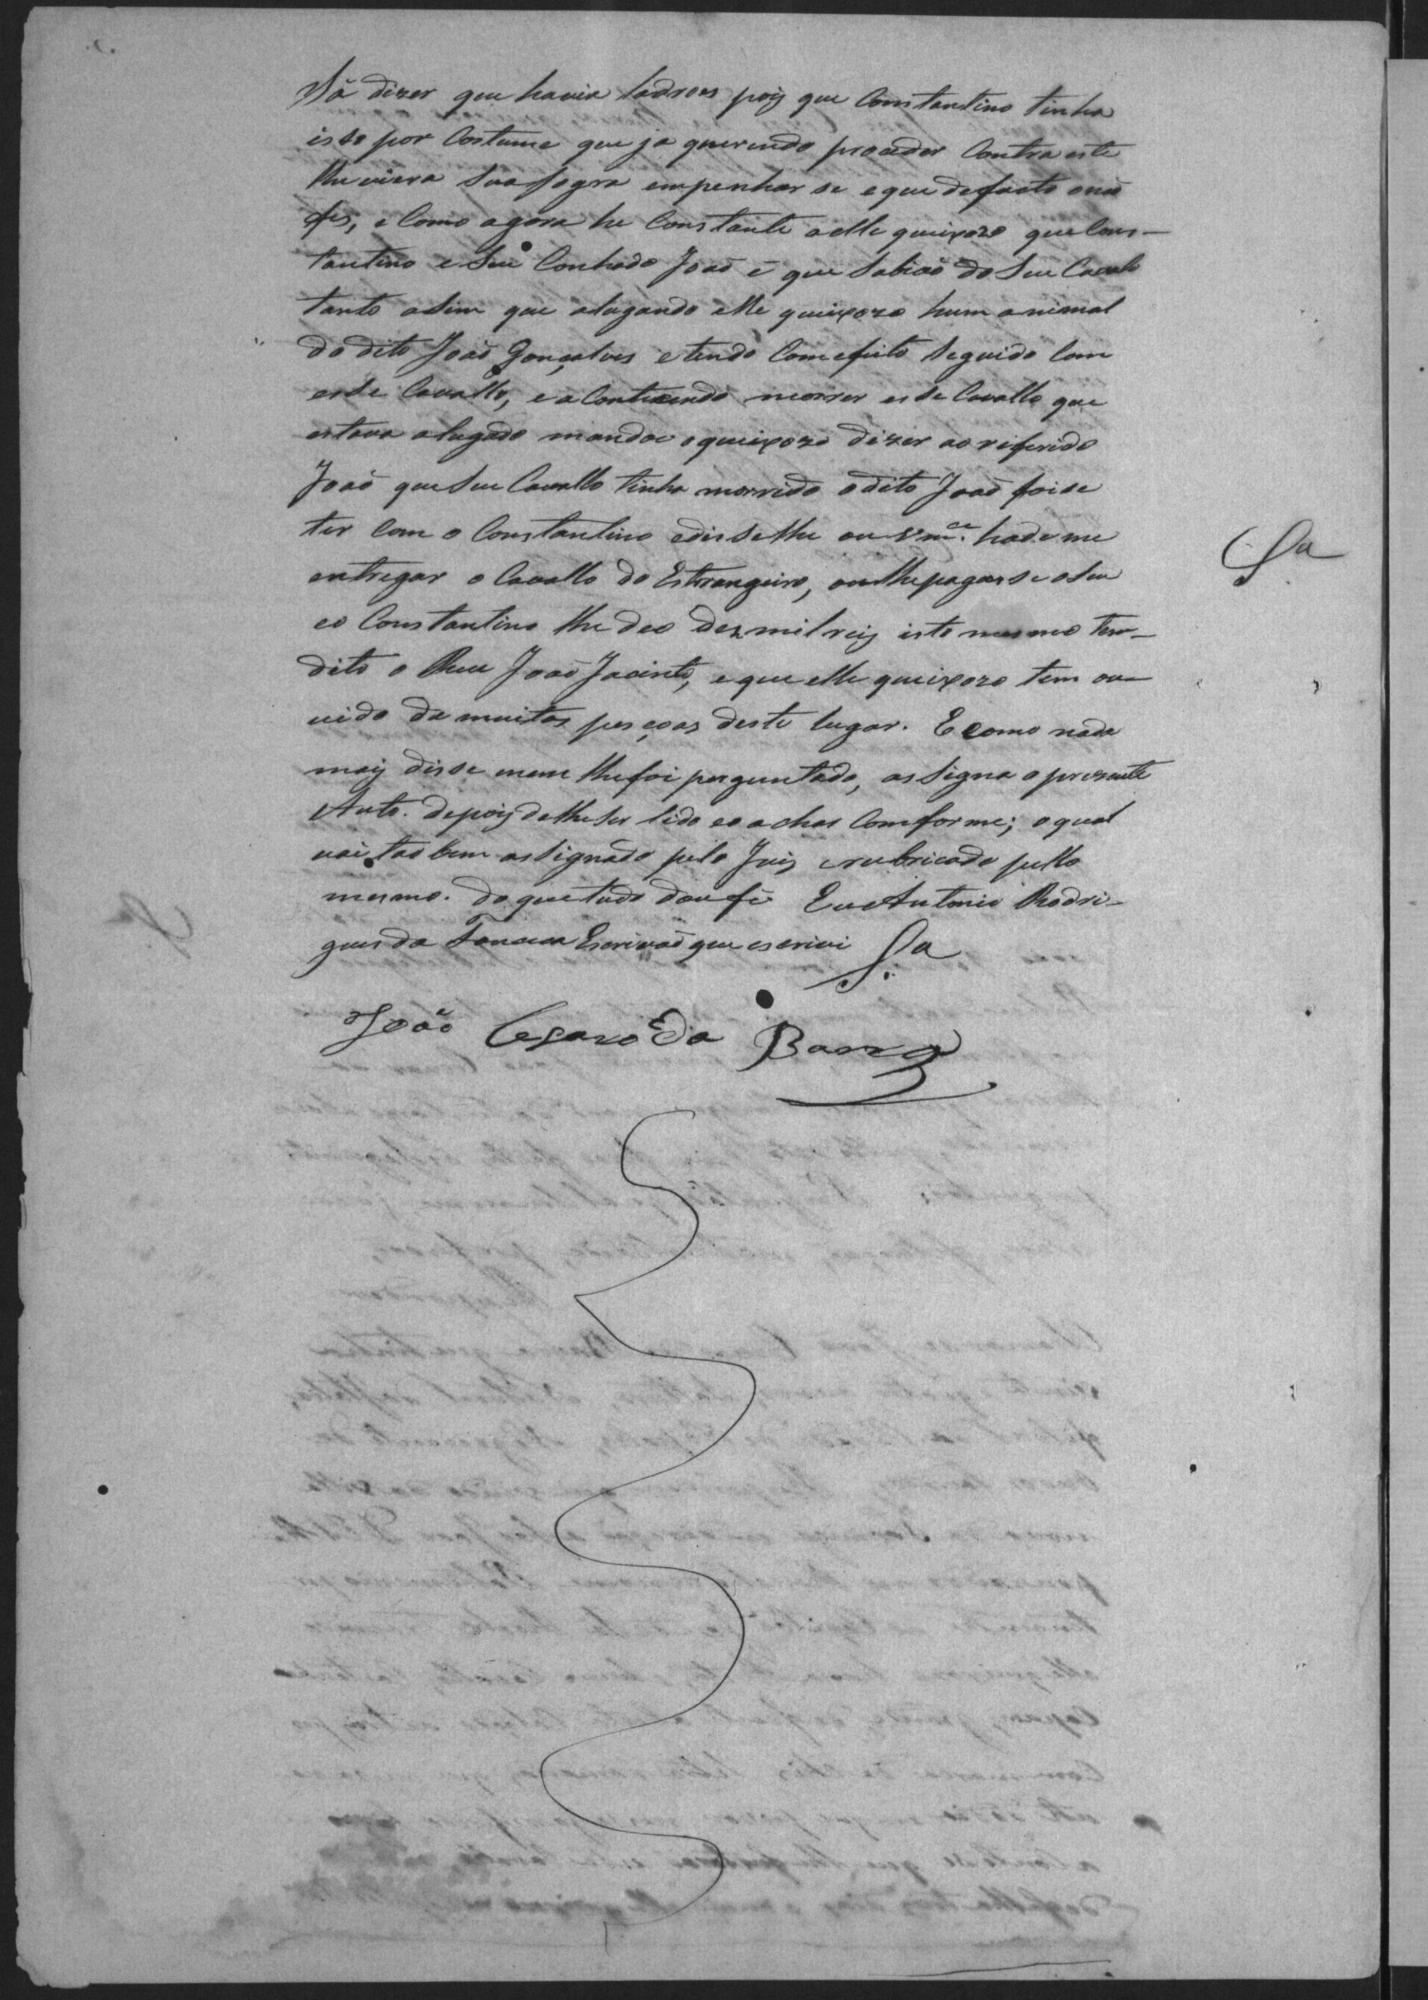 Sá dizer que havia ladroes pois que Constantino tinha
isso por Costume que ja querendo proceder Contra este
lhe viera Sua Sogra empenhar se e que de facto o não
fes, e Como agora he Constante a elle queixozo que Cons-
tantino e Seu Conhado João é que Sabião do Seu Cavalo
tanto asim que alugando elle queixozo hum animal
do dito João Gonçalves e tendo Com efeito Seguido Com
esse Cavallo, e acontecendo morrer esse Cavallo que
estava alugado mandou o queixozo dizer ao referido
João que Seu Cavallo tinha morrido o dito João foi se
ter Com o Constantino e disse lhe ou Vmce. hade me
entregar o Cavallo do Estrangeiro, ou lhe pagar se o Seu
e o Constantino lhe deo dez mil reis isto mesmo tem
dito o Reu João Jacinto, e que elle queixozo tem ou-
vido da muitas pesçoas deste lugar. E como nada
mais disse e nem lhe foi perguntado, assigna o presente
Auto. depois de lhe ser lido e o achar Comforme; o qual
vai tão bem assignado pelo Juis e rubricado pello
mesmo. do que tudo dou fé Eu Antonio Rodri-
gues da Escrivão que escrivi Sa
Sa
João Cesario da Barra